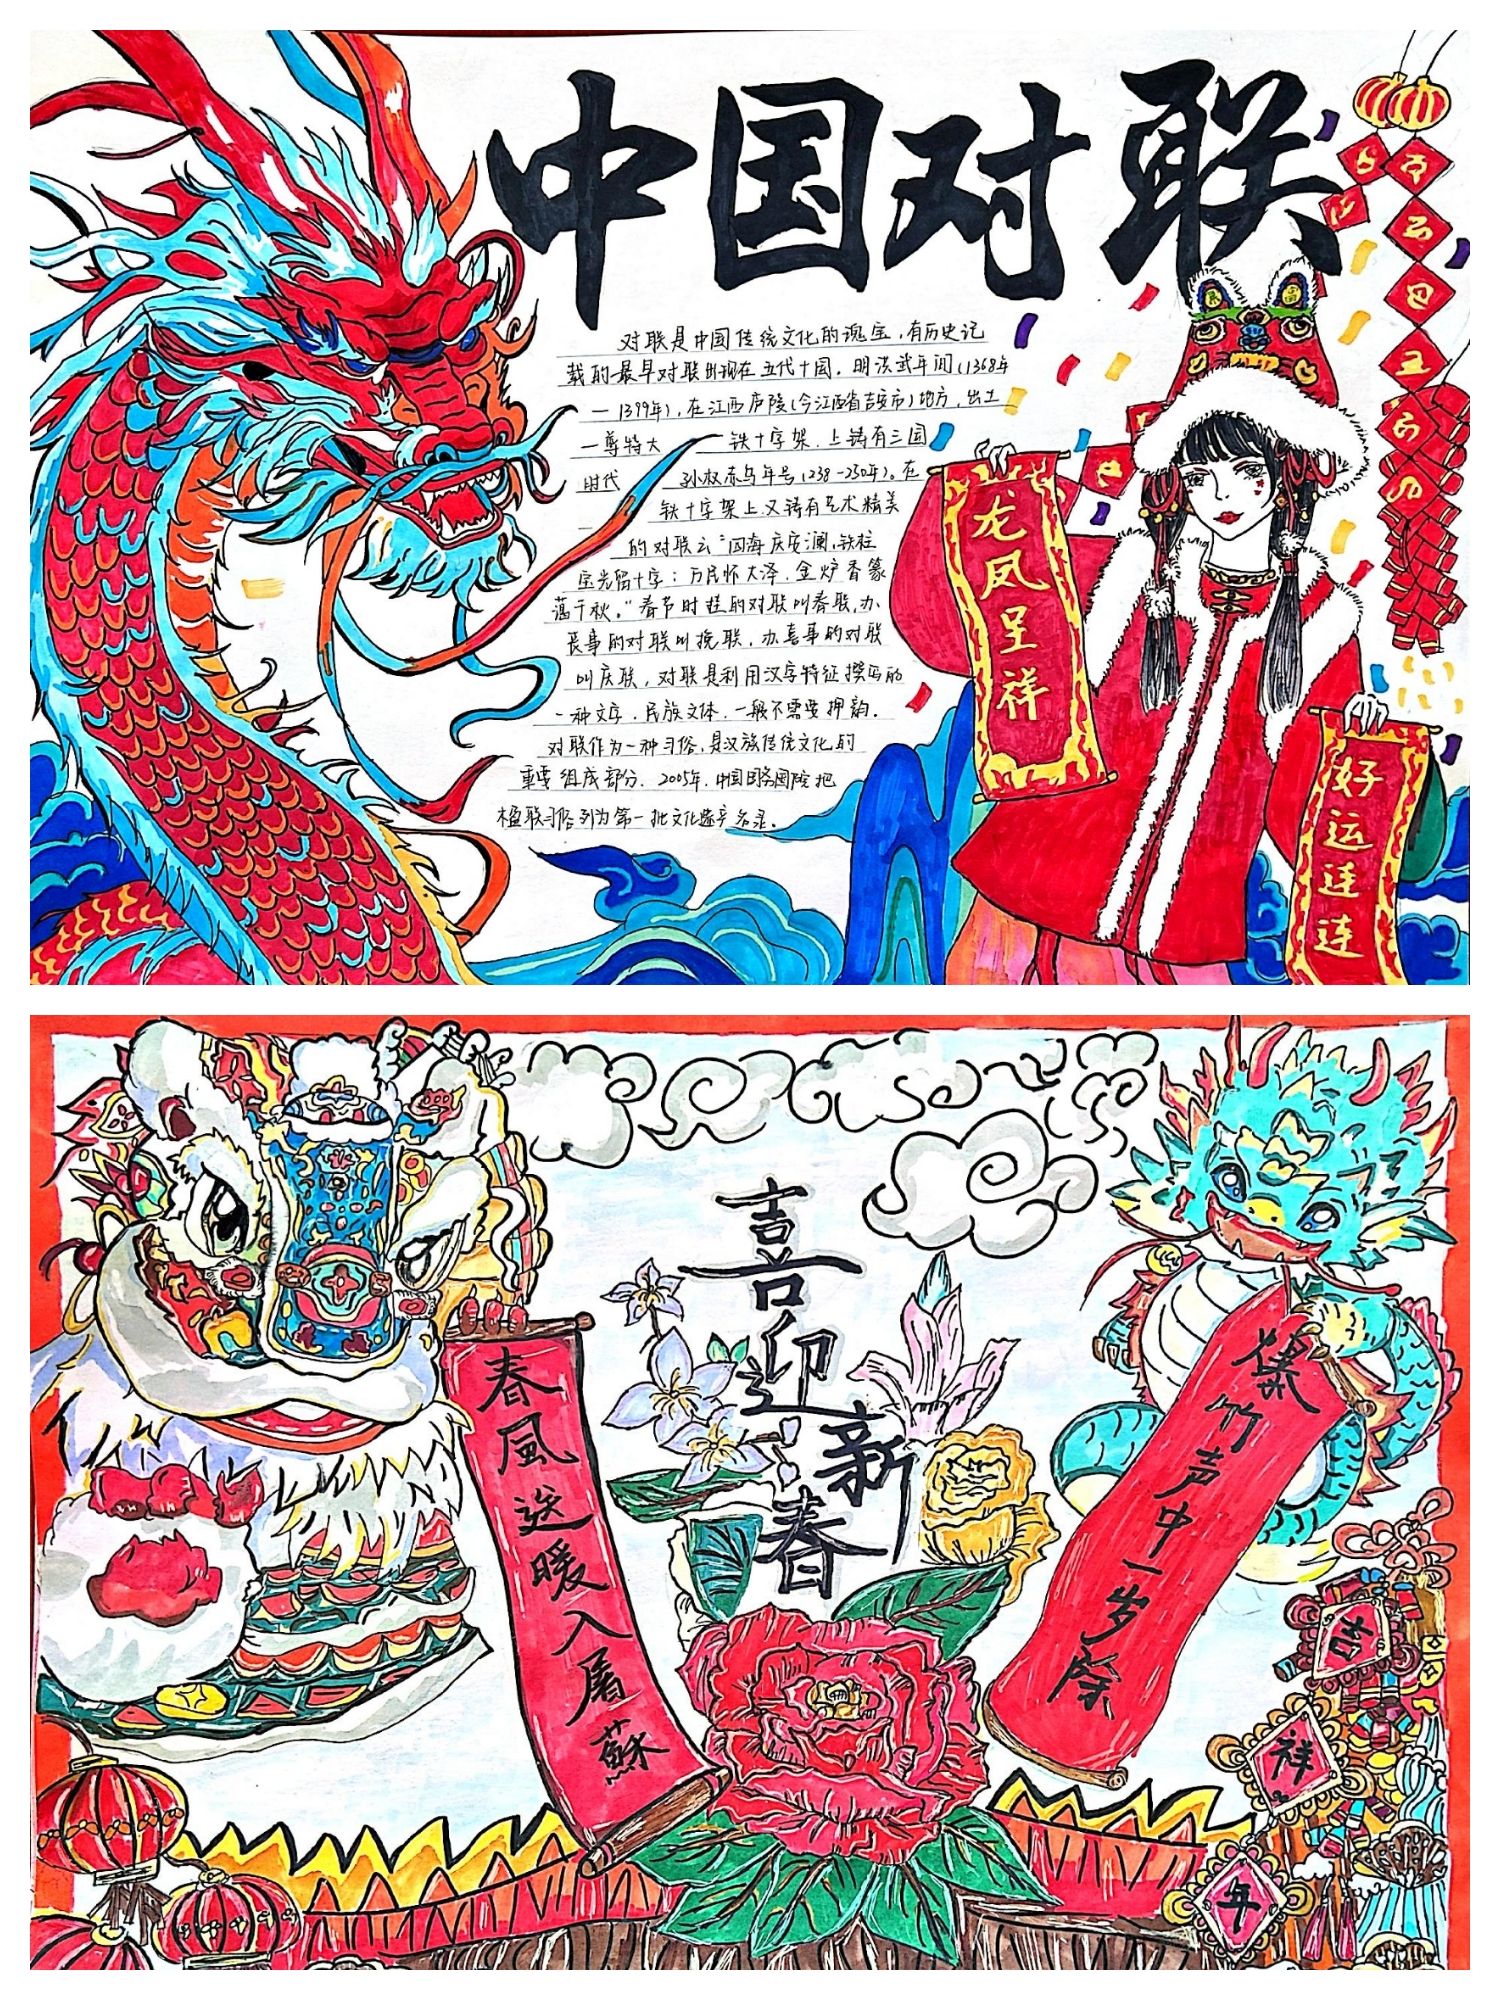 中国对联
对联是中国传统文化的瑰宝，有历史记
载的最早对联出现在五代十国。明洪武年间（1368年
—1399年），在江西庐陵（今江西省吉安市）地方，出土
一尊特大 铁十字架，上铸有三国
时代 孙权赤乌年号（238-250年）。在
铁十字架上又铸有艺术精美
的对联云“四海庆安澜，铁柱
宝光留十字；万民怀大泽，金炉香篆
蔼千秋。”春节时挂的对联叫春联，办
丧事的对联叫挽联，办喜事的对联
叫庆联，对联是利用汉字特征撰写的
一种文字，民族文体，一般不需要押韵。
对联作为一种习俗，是汉族传统文化的
重要组成部分，2005年，中国国务国院把
楹联习俗列为第一批文化遗产名录。
龙凤呈祥
好运连连
喜迎新春
春風送暖入屠蘇
爆竹声中一岁除
吉
祥
年